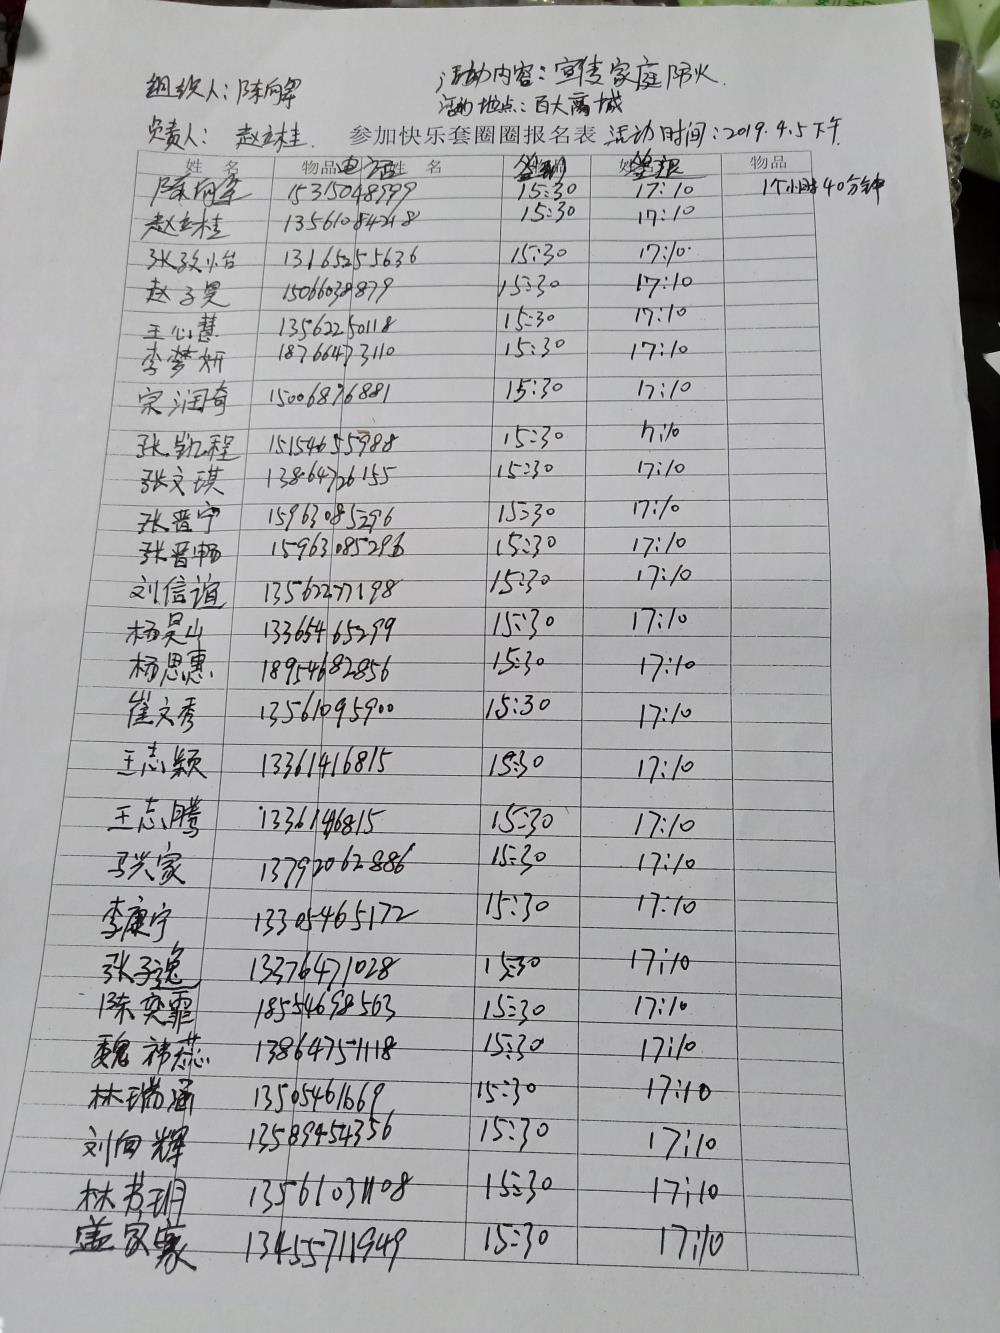 组织人：陈向军 活动内容：宣传家庭防火.
活动地点：百大商城
负责人：赵立桂 参加快乐套圈圈报名表 活动时间：2019.4.5下午
姓 名 物品 电话 姓 名 签到 签退 物品
陈向军 15315048999 15:30 17:10 1个小时40分钟
赵立桂 13561084218 15:30 17:10
13165255636 15:30 17:10
赵子旻 15066038879 15:30 17:10
王心慧 13562250118 15:30 17:10
李梦妍 18766473110 15:30 17:10
宋润奇 15006876881 15:30 17:10
张凯程 15154655988 15:30 17:10
张文琪 13864726155 15:30 17:10
张晋宁 15963085296 15:30 17:10
张晋畅 15963085296 15:30 17:10
刘信谊 13562277198 15:30 17:10
杨昊山 13365465299 15:30 17:10
杨思惠 18954682856 15:30 17:10
崔文秀 13561095900 15:30 17:10
王志颖 13361416815 15:30 17:10
王志腾 13361416815 15:30 17:10
马兴家 13792062886 15:30 17:10
李康宁 13305465172 15:30 17:10
张子逸 13376471028 15:30 17:10
陈奕霏 18554698563 15:30 17:10
魏祎蕊 13864751118 15:30 17:10
林瑞涵 13505461669 15:30 17:10
刘向辉 13589454356 15:30 17:10
林芳玥 13561031108 15:30 17:10
盖家宾 13455711949 15:30 17:10